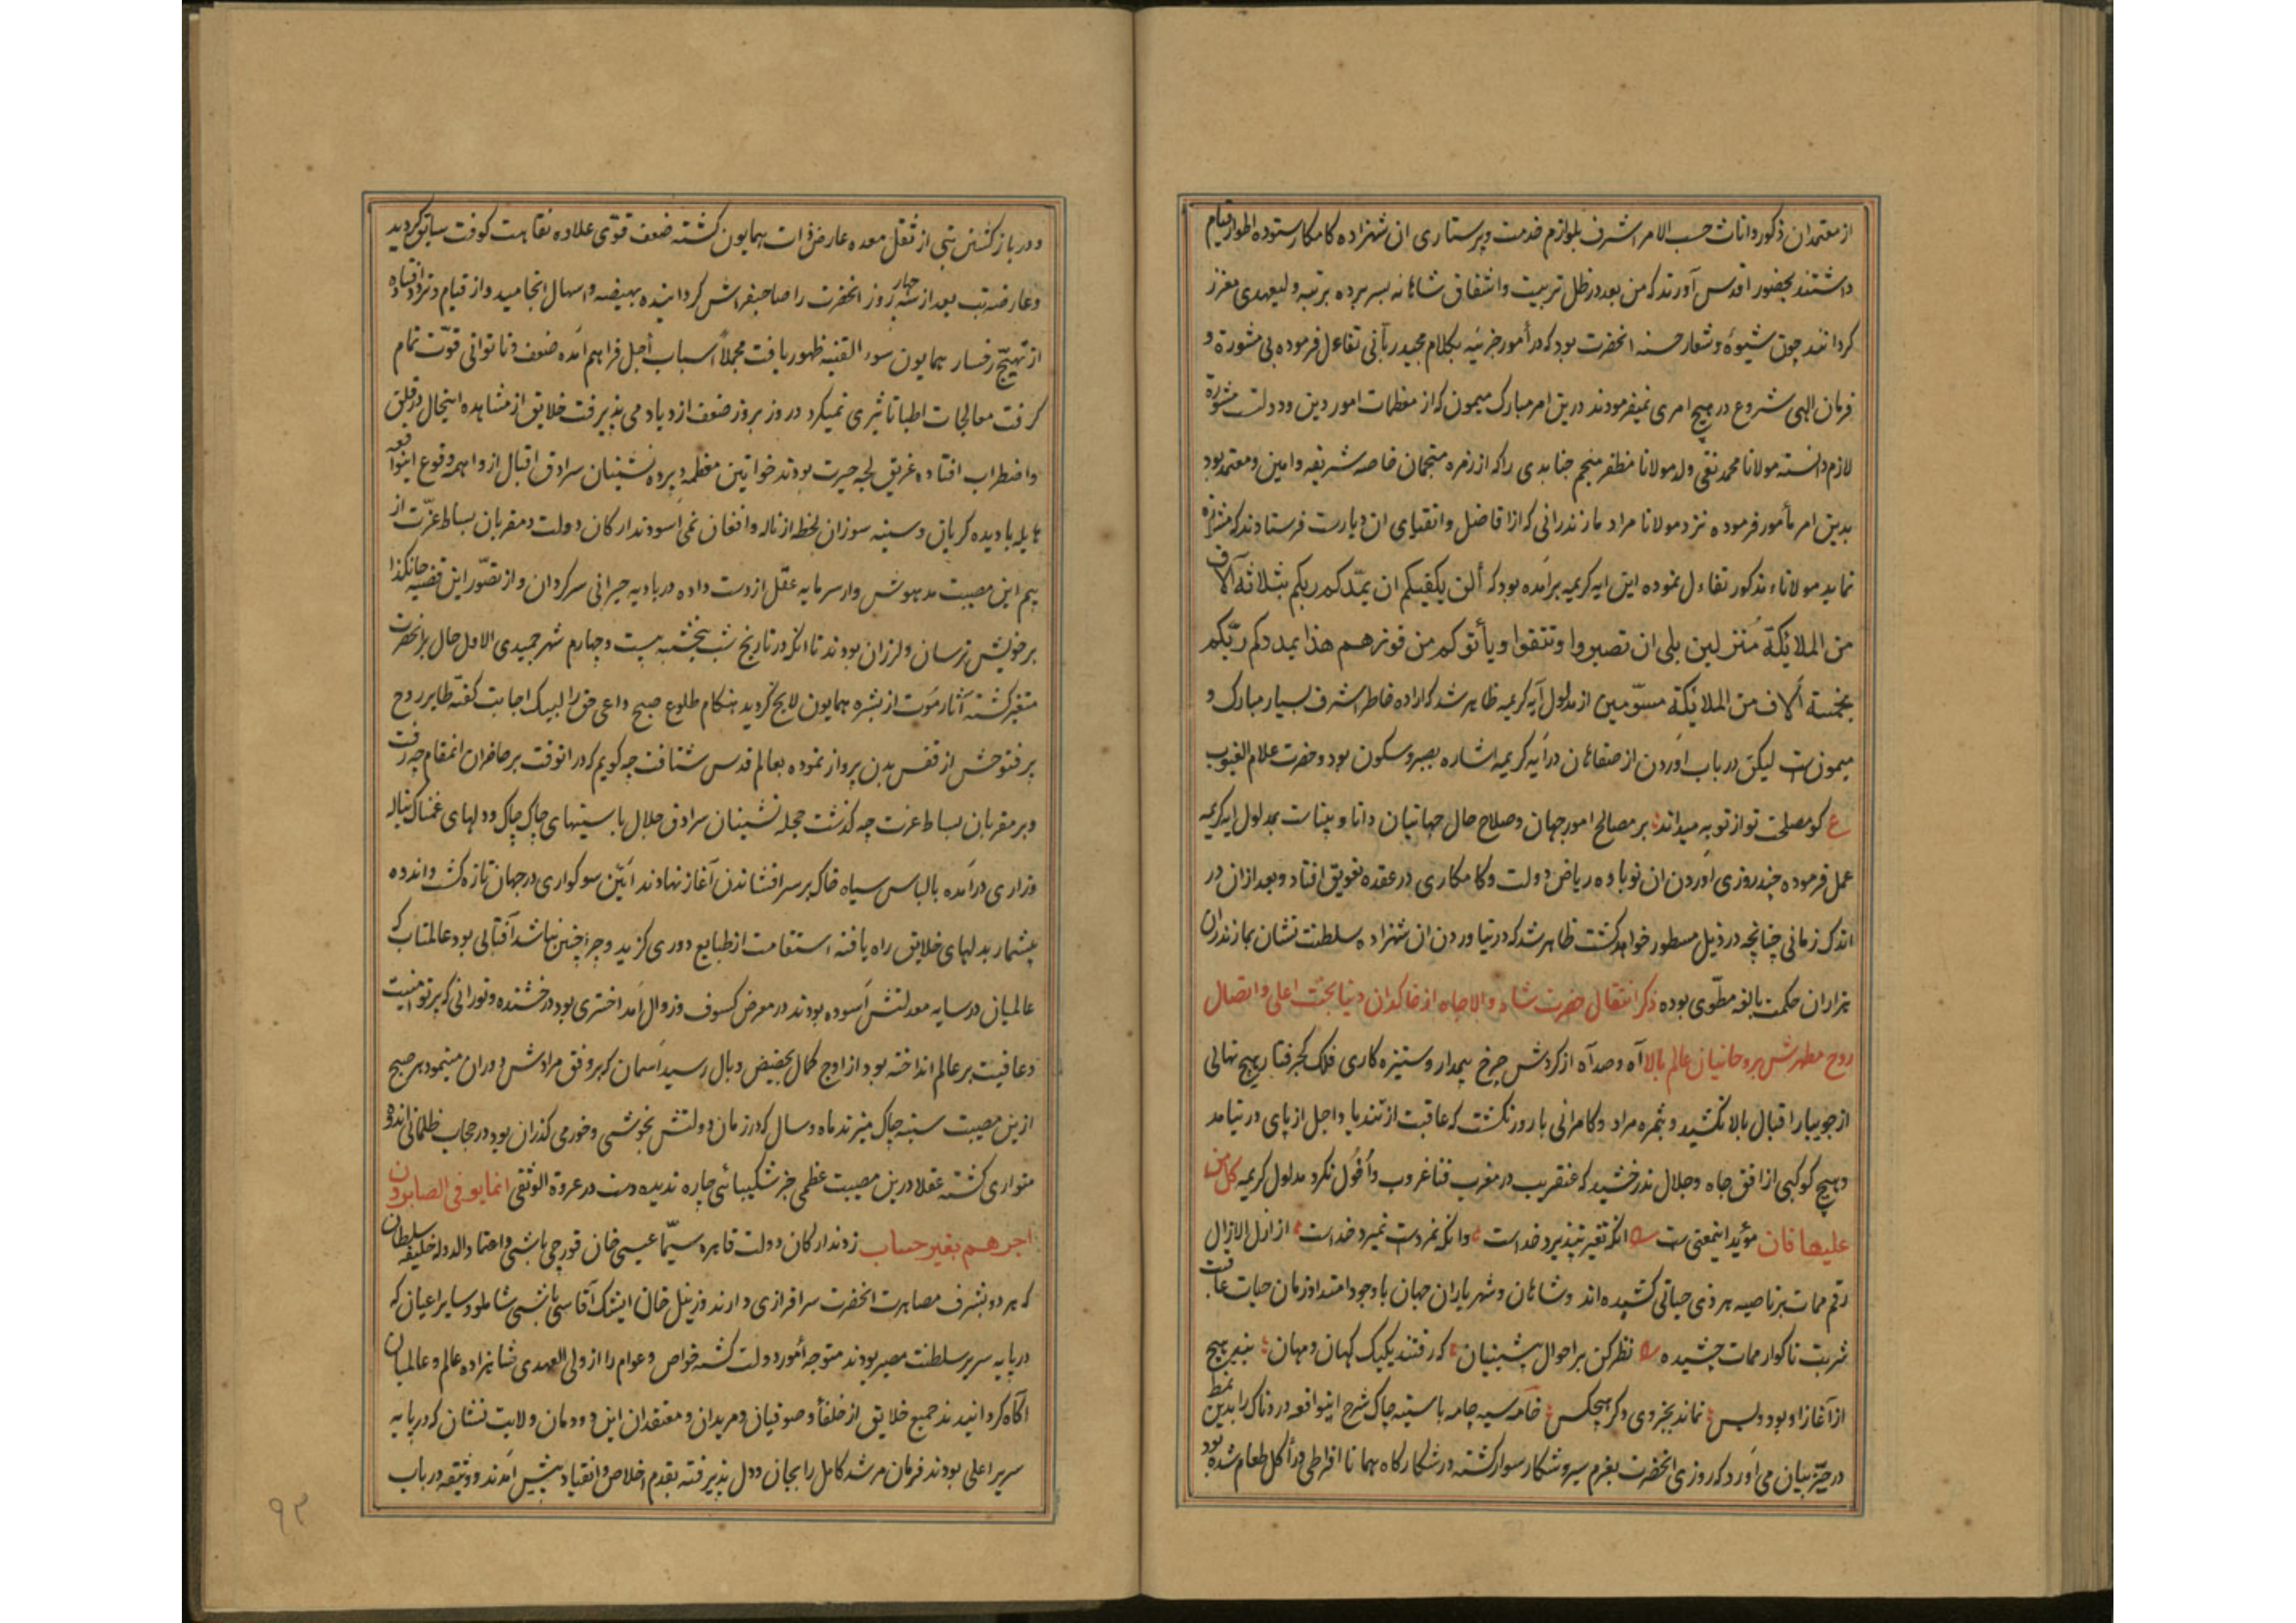 از معتمدان ذکور و اناث حسب الامر اشرف بلوازم خدمت و پرستاری ان شهزاده کامکار ستوده اطوار قیام
داشتند بحضور اقدس آورند که من بعد در ظل تربیت و اشفاق شاهانه بسر برده برتبه ولیعهدی معزز
کردانند چون شیوه و شعار حسنه انحضرت بود که در أمور جزئیه بکلام مجید ربآنی تفاءل فرموده بی مشورة و
فرمان الهی شروع در هیچ امری نمیفرمودند درین امر مبارک میمون که از معظمات امور دین و دولت مشورة
لازم دانسته مولانا محمد تقی ولد مولانا مظفر منجم جنابدی را که از زمره منجمان خاصه شریفه و امین و معتمد بود
بدین امر مأمور فرموده نزد مولانا مراد مازندرانی که از افاضل و اتقیای ان دیارت فرستادند که
نماید مولاناء مذکور تفاءل نموده این ایه کریمه برآمده بود که ألن یکفیکم ان یمدّکم ربکم بثلاثة آلاف
من الملائکة مُنزلین بلی ان تصبروا و تتقوا و یأتوکم من فورهم هذا یمددکم ربّکم
بخمسة آلاف من الملائکة مسوّمین از مدلول آیه کریمه ظاهر شد که اراده خاطر اشرف بسیار مبارک و
میمونست لیکن در باب اوردن از صفاهان در آیه کریمه اشاره بصبر و سکون بود و حضرت علام الغیوب
ع کو مصلحت تو از تو به میداند بر مصالح امور جهان و صلاح حال جهانیان دانا و بیناست بمدلول ایه کریمه
عمل فرموده چند روزی اوردن ان نوباوه ریاض دولت و کامکاری در عقده تعویق افتاد و بعد از ان در
اندک زمانی چنانچه در ذیل مسطور خواهد کشت ظاهر شد که در نیاوردن ان شهزاده سلطنت نشان بمازندران
هزاران حکمت بالغه مطّوی بوده ذکر انتقال حضرت شاه والاجاه از خاکدان دنیا بجنت اعلی و اتصال
روح مطهرش بروحانیان عالم بالا آه و صد آه از کردش چرخ بیمدار و ستیزه کاری فلک کجرفتار هیچ نهالی
از جویبار اقبال بالا نکشید و ثمره مراد و کامرانی بارور نکشت که عاقبت از تندباد اجل از پای در نیامد
و هیچ کوکبی از افق جاه و جلال ندرخشید که عنقریب در مغرب فنا غروب و أفول نکرد مدلول کریمه کل من
علیها فان مؤید اینمعنی ست انکه تغیر نپذیرد خداست وانکه نمردست نمیرد خداست از ازل الازال
رقم ممات بر ناصیه هر ذی حیاتی کشیده اند و شاهان و شهریاران جهان با وجود امتداد زمان حیات عاقبت
شربت ناکوار ممات چشیده نظر کن بر احوال پیشینیان که رفتند یکیک کهان و مهان
از آغاز او بود و بس نماند بجز وی دکر هیچکس خامه سیه جامه با سینه چاک شرح اینواقعه دردناک را بدین نمط
در حیّز بیان می آورد که روزی انحضرت بعزم سیر و شکار سوار کشته در شکارکاه همانا افراطی در أکل طعام شده بود
و در بازکشتن تبی از ثقل معده عارض ذات همایون کشته ضعف قوّی علاوه نقاهت کوفت سابق کردید
و عارضه تب بعد از سه چهار روز انحضرت را صاحبفراش کردانیده بهیضه و اسهال انجامید و از قیام و تردد افتاده
از تهیّج رخسار همایون سوء القنیه ظهور یافت مجملاً اسباب أجل فراهم آمده ضعف و ناتوانی قوّت تمام
کرفت معالجات اطبا تاثیری نمیکرد و روز بروز ضعف ازدیاد می پذیرفت خلایق از مشاهده اینحال در قلق
و اضطراب افتاده غریق لجه حیرت بودند خواتین معظمه و پرده نشینان سرادق اقبال از واهمه وقوع اینواقعه
هایله با دیده کریان و سینه سوزان لحظه از ناله و افغان نمی آسودند ارکان دولت و مقربان بساط عزّت از
بیم این مصیبت مدهوش وار سرمایه عقل از دست داده در بادیه حیرانی سرکردان و از تصّور این قضیه جانکداز
بر خویش ترسان و لرزان بودند تا انکه در تاریخ شب پنجشنبه بیست و چهارم شهر جمیدی الاول حال بر انحضرت
متغیر کشته آثار موت از بشره همایون لایح کردید هنکام طلوع صبح داعی حق را لبیک اجابت کفته طایر روح
پر فتوحش از قفس بدن پرواز نموده بعالم قدس شتافت چه کویم که در انوقت بر حاضران انمقام چه رفت
و بر مقربان بساط عزت چه کذشت حجله نشینان سرادق جلال با سینهای چاک چاک و دلهای غمناک بناله
و زاری درآمده با لباس سیاه خاک بر سر افشاندن آغاز نهادند آیین سوکواری در جهان تازه کشت و اندوه
بیشمار بدلهای خلایق راه یافته استقامت از طبایع دوری کزید و چرا چنین نباشد آفتابی بود عالمتاب که
عالمیان در سایه معدلتش آسوده بودند در معرض کسوف و زوال آمد اختری بود درخشنده و نورانی که پرتو امنیت
و عافیت بر عالم انداخته بود از اوج کمال بحضیض وبال رسید آسمان که بر وفق مرادش دوران مینمود هر صبح
ازین مصیبت سینه چاک میزند ماه و سال که در زمان دولتش بخوشی و خورمی کذران بود در حجاب ظلمانی اندوه
متواری کشته عقلا درین مصیبت عظمی جز شکیبائی چاره ندیده دست در عروة الوثقی انما یوفی الصابرون
اجرهم بغیر حساب زدند ارکان دولت قاهره سیّما عیسی خان قورچی باشی و اعتماد الدوله خلیفه سلطان
که هر دو بشرف مصاهرت انحضرت سرافرازی دارند و زینل خان ایشک آقاسی باشی شاملو و سایر اعیان که
در پایه سریر سلطنت مصیر بودند متوجه أمور دولت کشته خواص و عوام را از ولی العهدی شاهزاده عالم و عالمیان
آکاه کردانیدند جمیع خلایق از خلفأ و صوفیان و مریدان و معتقدان این دودمان ولایت نشان که در پایه
سریر اعلی بودند فرمان مرشد کامل را بجان و دل پذیرفته بقدم اخلاص و انقیاد پیش آمدند و وثیقه در باب
۹۳